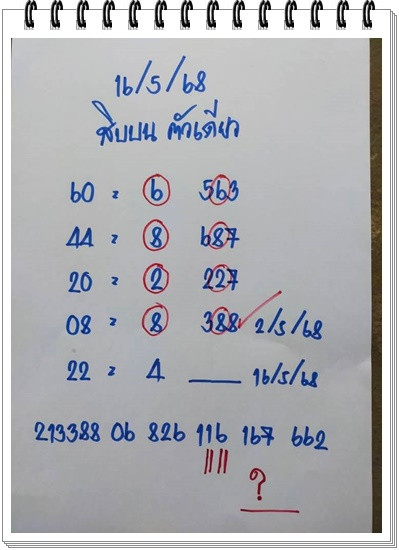 16/5/68
สิบบน ตัวเดียว
60 = 6 563
44 = 8 687
20 = 2 227
08 = 8 388 ✓ 2/5/68
22 = 4 ___ 16/5/68
213388 06 826 116 167 662
?